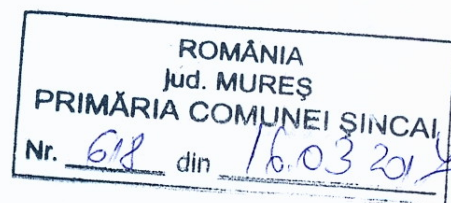 ROMÂNIA
jud. MUREŞ
PRIMĂRIA COMUNEI ŞINCAI
Nr. 618 din 16.03 2017